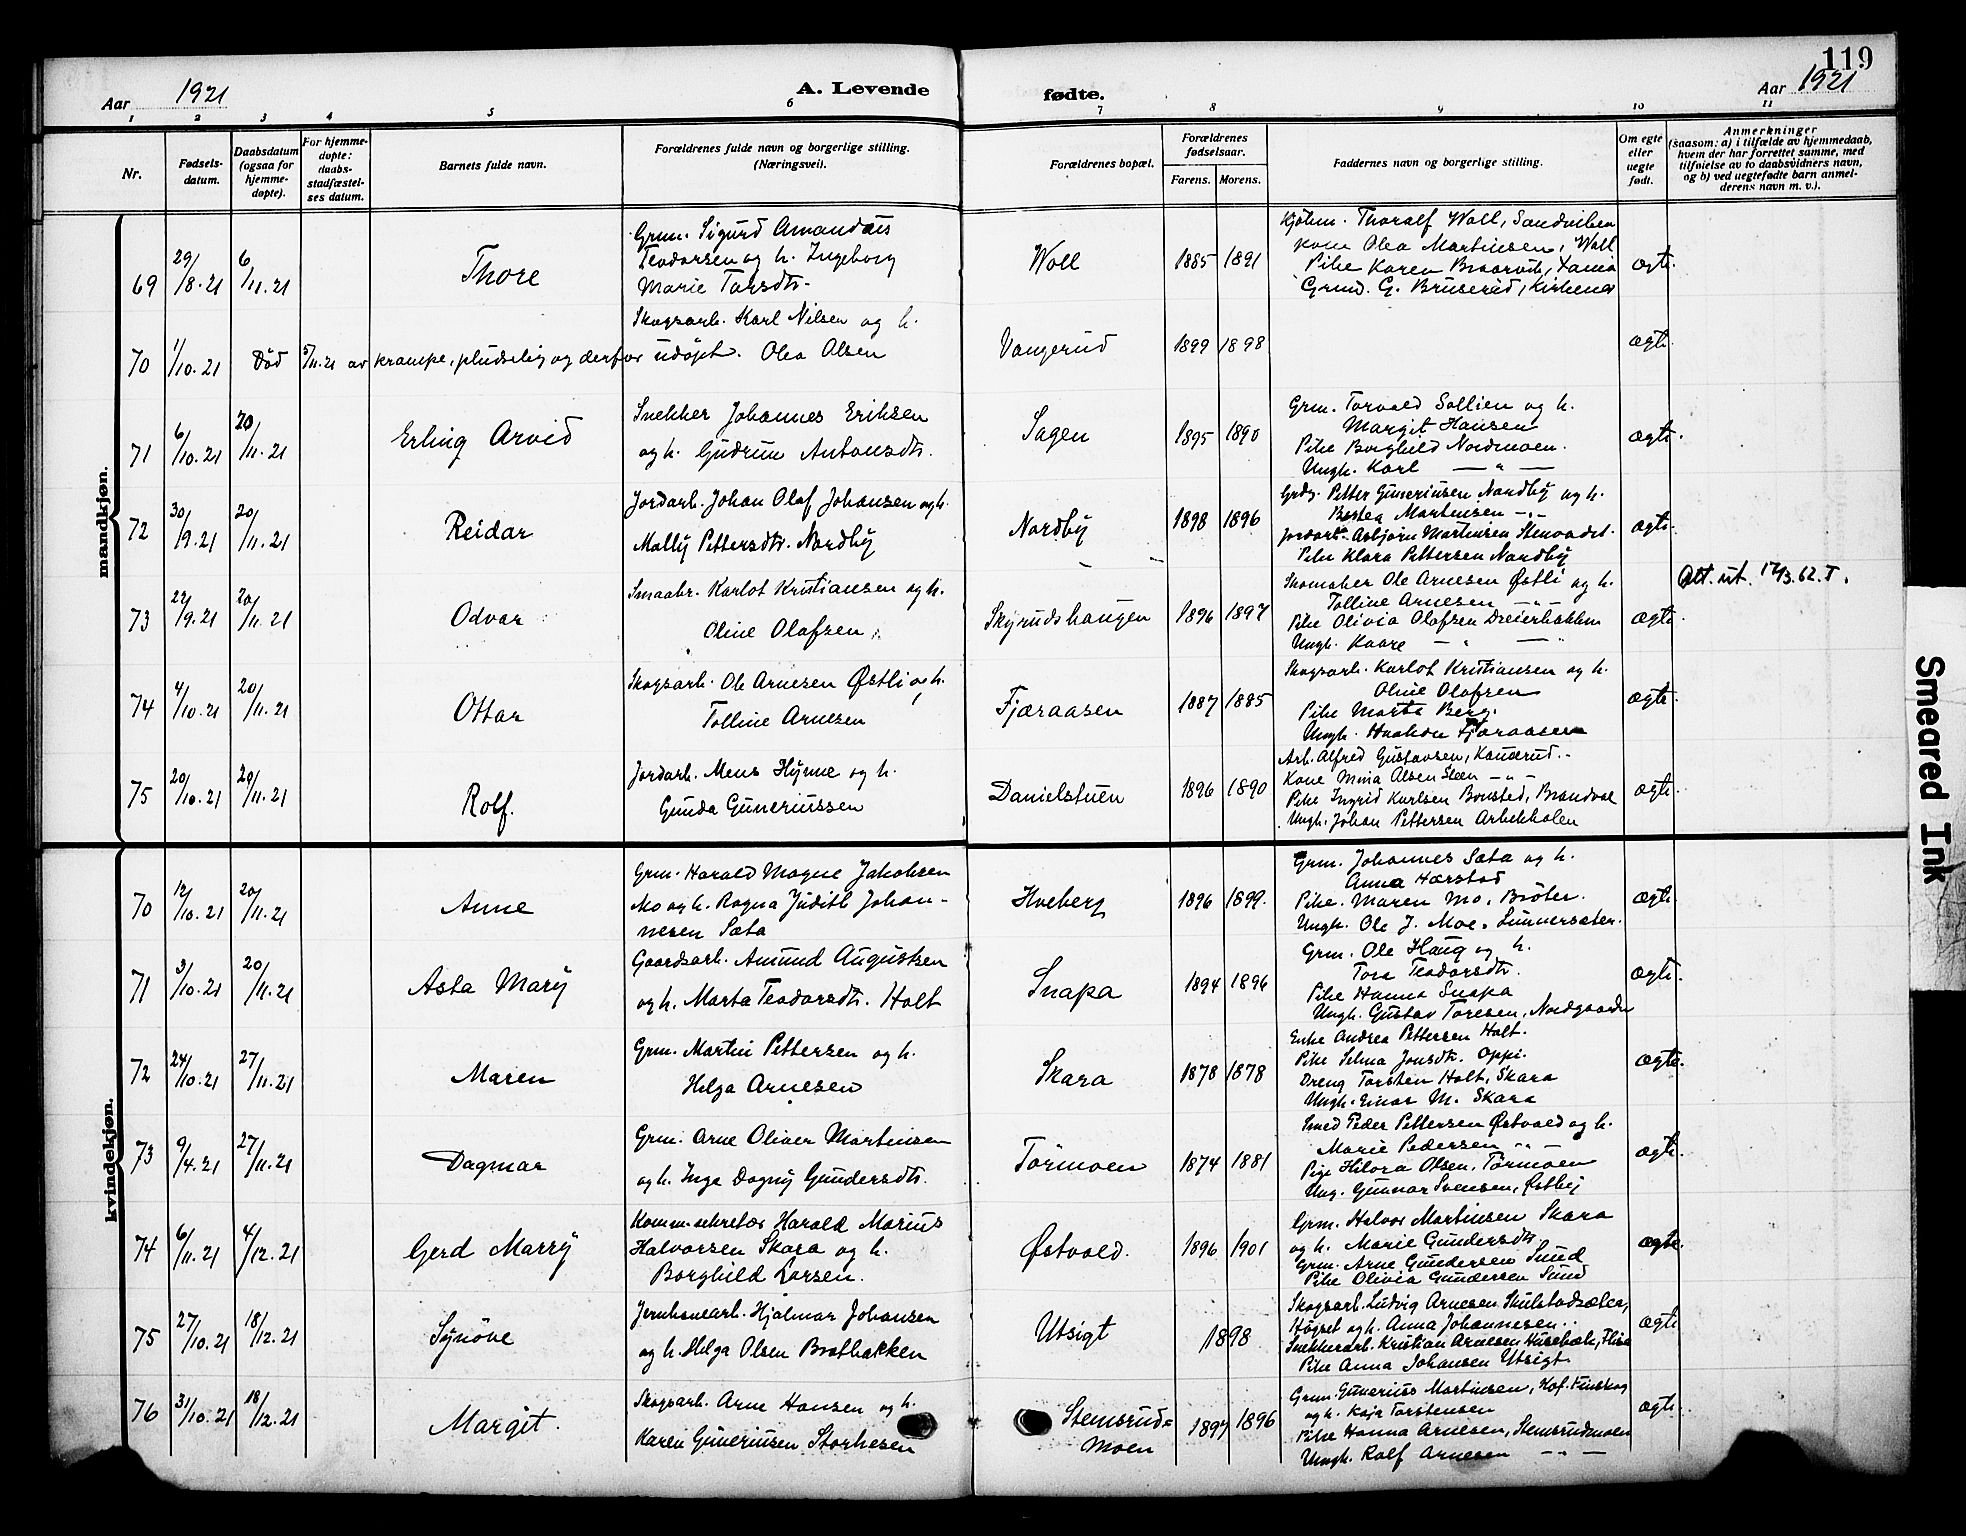 119
Aar 1921
A. Levende
fødte.
Aar 1921
1 2 3 4 5 6 7 8 9 10 11
Nr.
Fødsels-
datum.
Daabsdatum
(ogsaa for
hjemme-
døpte).
For hjemme-
døpte:
daabs-
stadfæstel-
ses datum.
Barnets fulde navn.
Forældrenes fulde navn og borgerlige stilling.
(Næringsvei).
Forældrenes bopæl.
Forældrenes
fødselsaar.
Farens. Morens.
Faddernes navn og borgerlige stilling.
Om egte
eller
uegte
født.
Anmerkninger
(saasom: a) i tilfælde av hjemmedaab,
hvem der har forrettet samme, med
tilføielse av to daabsvidners navn,
og b) ved uegtefødte barn anmel-
derens navn m. v.).
mandkjøn.
69 29/8.21 6/11.21 Thore
Grm. Sigurd Amandus
Teodorsen og h. Ingeborg
Marie Torsdtr.
Woll 1885 1891
Kjøbm. Thoralf Woll, Sandviken
Kone Olea Martinsen, Woll
Pike Karen Braarvik, Xania
Grmd. G. Bruserud, Kirkenær
ægte.
70 1/10.21 Død 5/11.21 av krampe, pludselig og derfor udøpt.
Skogsarb. Karl Nilsen og h.
Olea Olsen
Vangerud 1899 1898 ægte.
71 6/10.21 20/11.21 Erling Arvid
Snekker Johannes Eriksen
og h. Gudrun Antonsdtr.
Sagen 1895 1890
Grm. Torvald Sollien og h.
Margit Hansen
Pike Borghild Nordmoen.
Ungk. Karl — " —
ægte.
72 30/9.21 20/11.21 Reidar
Jordarb. Johan Olaf Johansen og h.
Mally Pettersdtr. Nordby
Nordby 1898 1896
Grdg. Petter Guneriusen Nordby og h.
Bertea Martinsen — " —
Jordarb. Asbjørn Martinsen Stenvadet.
Pike Klara Pettersen Nordby
ægte.
73 22/9.21 20/11.21 Odvar
Smaabr. Karlot Kristiansen og h.
Oline Olafsen
Skyrudshaugen 1896 1897
Skomaker Ole Arnesen Østli og h.
Tolline Arnesen — " —
Pike Olivia Olafsen Dreierbakken
Ungk. Kaare — " —
ægte.
Att. ut. 17/3.62.T.
74 4/10.21 20/11.21 Ottar
Skogsarb. Ole Arnesen Østli og h.
Tolline Arnesen
Fjæraasen 1887 1885
Skogsarb. Karlot Kristiansen og h.
Oline Olafsen
Pike Marta Berg.
Ungk. Haakon Fjæraasen
ægte.
75 20/10.21 20/11.21 Rolf.
Jordarb. Mens Hynne og h.
Gunda Guneriussen
Danielstuen 1896 1890
Arb. Alfred Gustavsen, Kanserud.
Kone Mina Olsen Steen — " —
Pike Ingrid Karlsen Bonsted, Brandval
Ungk. Johan Pettersen Arbekkolen
ægte.
kvindekjøn.
70 12/10.21 20/11.21 Anne
Grm. Harald Magne Jakobsen
Mo og h. Ragna Judith Johan-
nesen Sæta
Hveberg 1896 1899.
Grm. Johannes Sæta og h.
Anna Hærstad
Pike. Maren Mo, Brøter.
Ungk. Ole J. Moe. Linnersæter.
ægte.
71 3/10.21 20/11.21 Asta Mary
Gaardsarb. Amund Augustsen
og h. Marta Teodorsdtr. Holt
Snapa 1894 1896
Grm. Ole Haug og h.
Tora Teodorsdtr.
Pike Hanna Snapa
Ungk. Gustav Toresen, Nordgaarden
ægte.
72 24/10.21 27/11.21 Maren
Grm. Martin Pettersen og h.
Helga Arnesen
Skara 1878 1878
Enke Andrea Pettersen Holt.
Pike Selma Jonsdtr. Oppi.
Dreng Torsten Holt, Skara
Ungk. Einar M. Skara
ægte.
73 9/4.21 27/11.21 Dagmar
Grm. Arne Oliver Martinsen
og h. Inga Dagny Gundersdtr.
Tørmoen 1874 1881
Smed Peder Pettersen Østvold og h.
Marie Pedersen — " —
Pige Hilora Olsen, Tørmoen
Ung. Gunnar Svensen, Østby
ægte.
74 6/11.21 4/12.21 Gerd Marry
Komm.sekretær Harald Marius
Halvorsen Skara og h.
Borghild Larsen.
Østvold. 1896 1901
Grm. Halvor Martinsen Skara
og h. Marie Gundersdtr.
Grm. Arne Gundersen Sund
Pike Olivia Gundersen Sund
ægte.
75 27/10.21 18/12.21 Synøve
Jernbanearb. Hjalmar Johansen
og h. Helga Olsen Bratbakken
Utsigt 1898
Skogsarb. Ludvig Arnesen Skulstadsæter,
Høgset og h. Anna Johannesen
Snekkerarb. Kristian Arnesen Husebæk, Flisa
Pike Anna Johansen Utsigt
ægte.
76 31/10.21 18/12.21 Margit.
Skogsarb. Arne Hansen og h.
Karen Guneriusen Storhesen
Stemsrud=
moen 1897 1896
Grm. Gunerius Martinsen, Hof. Finskog
og h. Kaja Torstensen
Pike Hanna Arnesen, Stemsrudmoen
Ungk. Rolf Arnesen — " —
ægte.
Smeared Ink